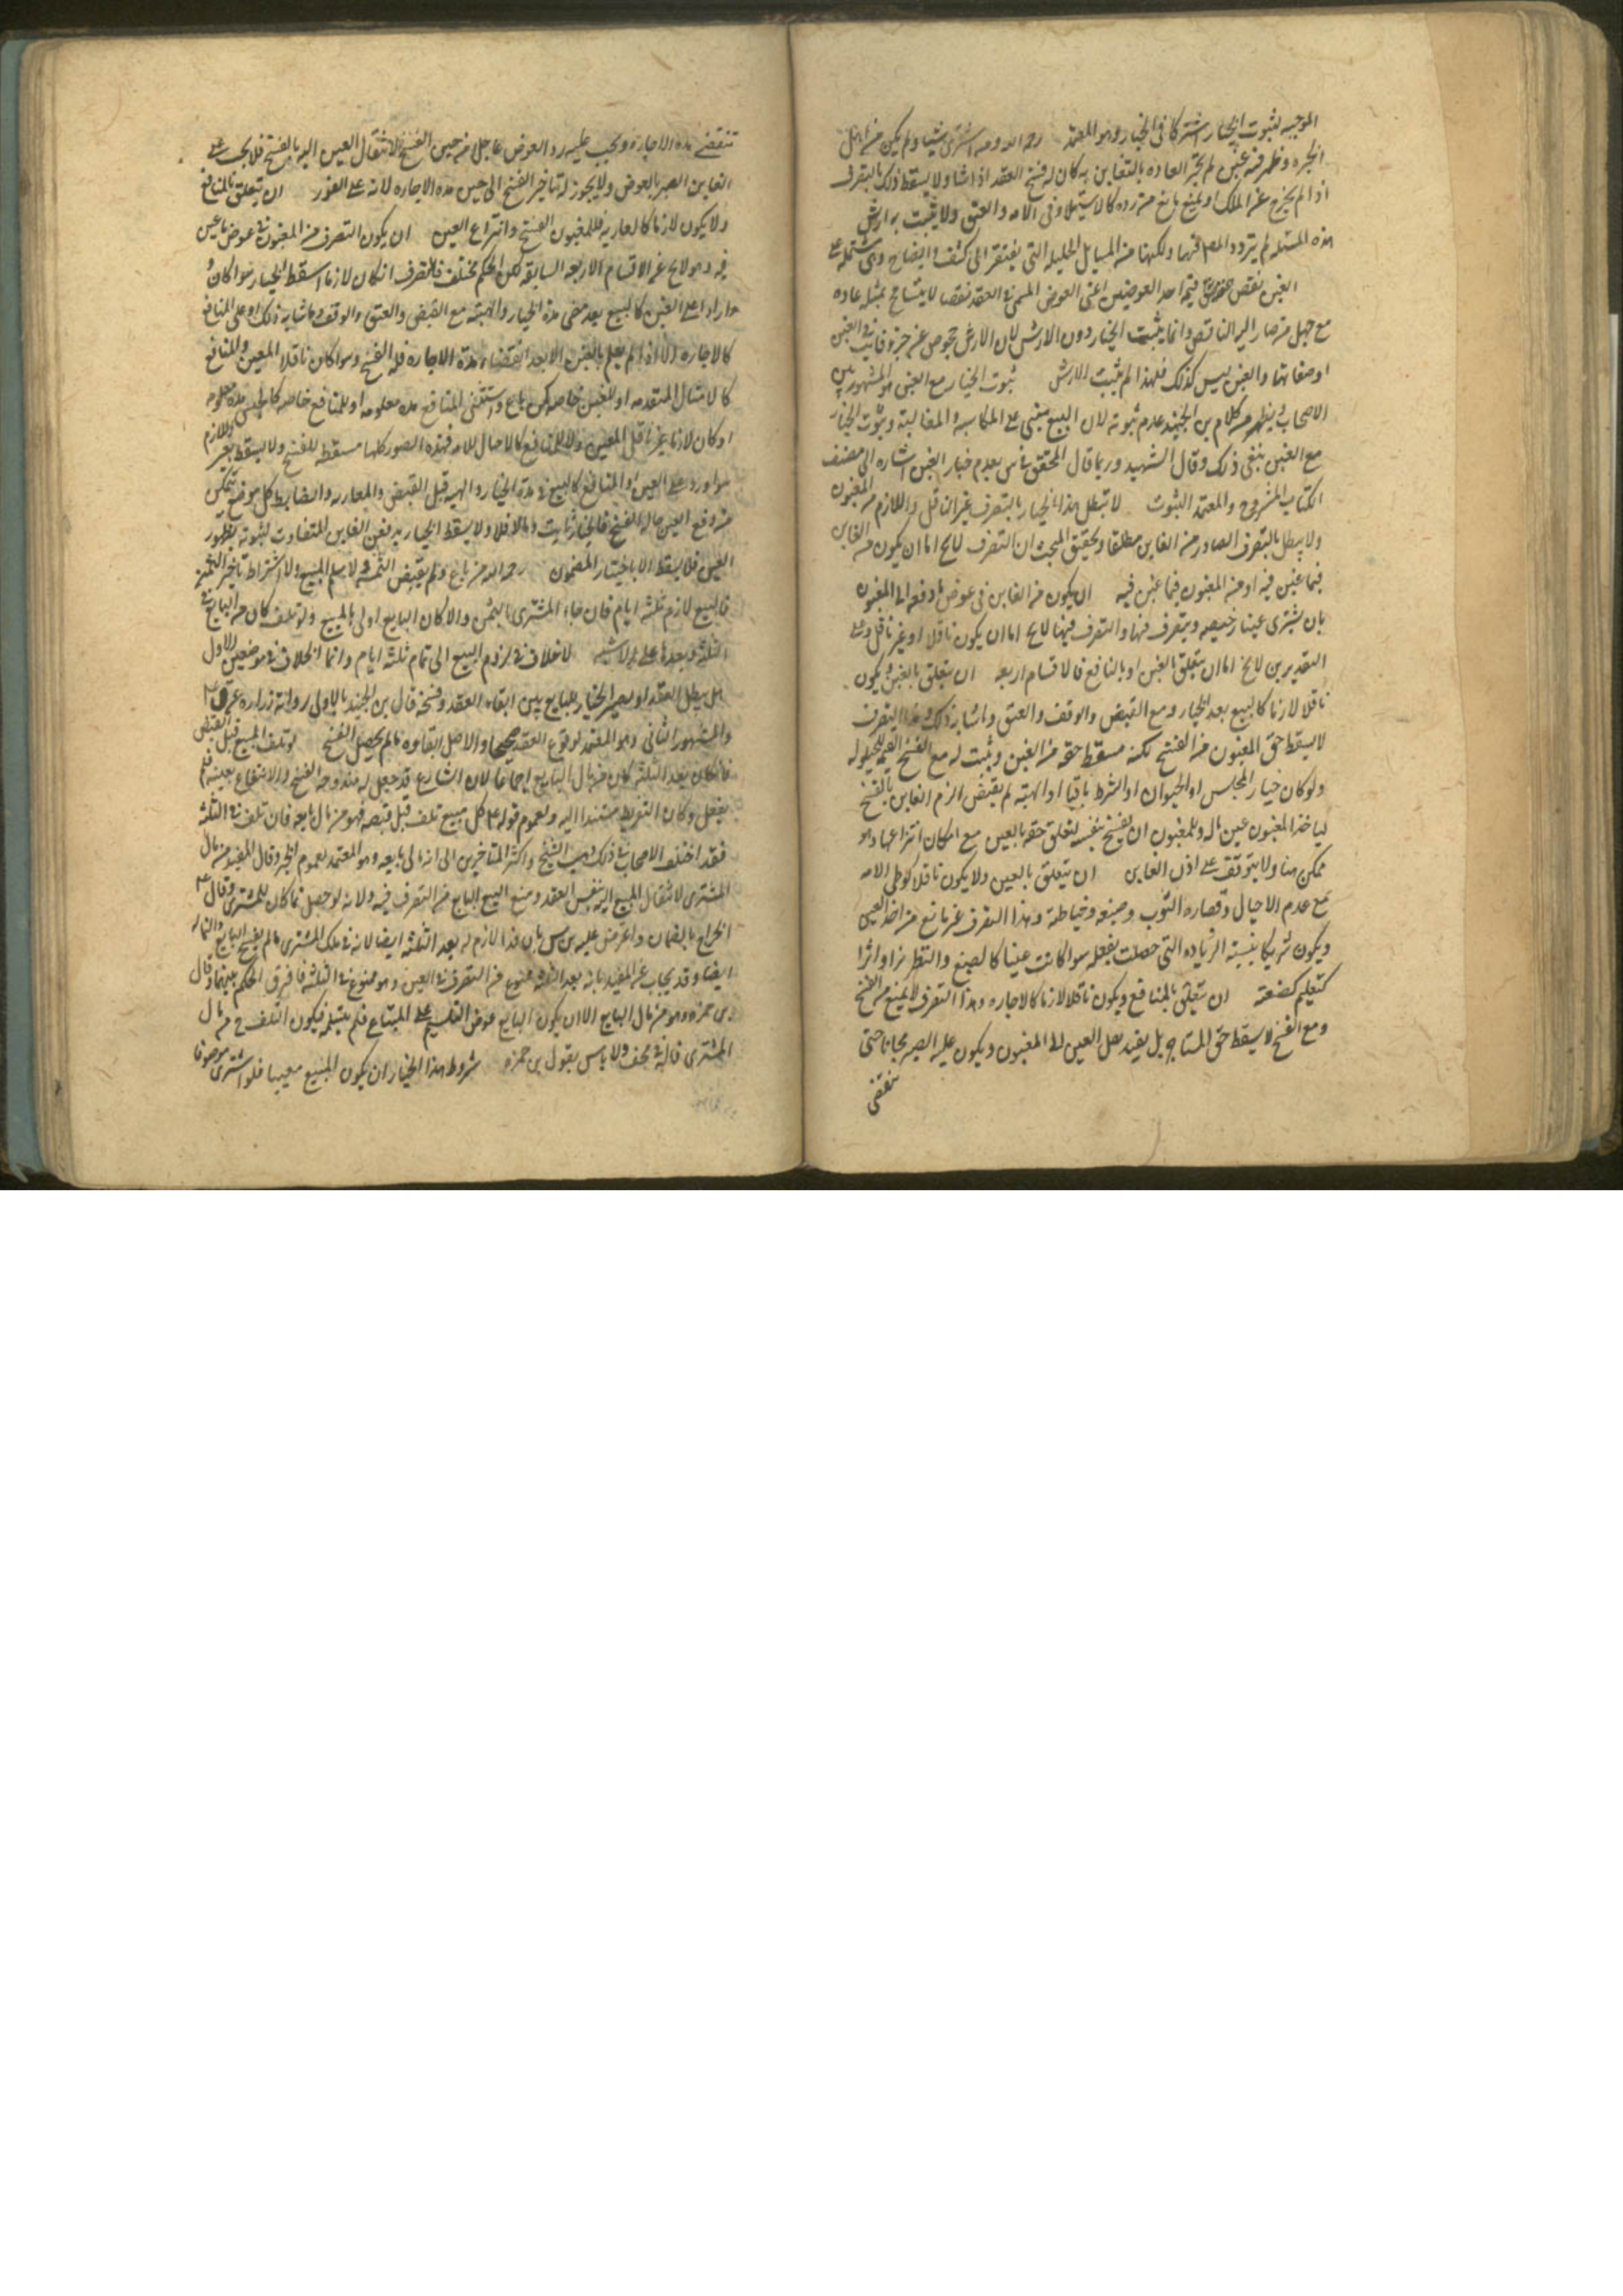 الموجبه لثبوت الخيار اشتركا في الخيار وهو المعتمد رحمه الله ومن اشترى شيئا ولم يكن من اهل
الخبره وظهر فيه غبن لم تجر العاده بالتغابن به كان له فسخ العقد اذا شا ولا يسقط ذلك بالتصرف
اذا لم يخرج عن الملك او يمنع مانع من رده كالاستيلاد في الامه والعتق ولا يثبت به ارش
هذه المسئله لم يتردد المصـ فيها ولكنها من المسايل الجليله التي يفتقر الى كشف وايضاح وهي مشتمله على
الغبن نقص قيمة احد العوضين اعني العوض المسمى في العقد نقصا لا يتسامح بمثله عاده
مع جهل من صار اليه الناقص وانما يثبت الخيار دون الارش لان الارش عوض عن جزء فايت في العين
او صفاتها والغبن ليس كذلك فلهذا لم يثبت الارش ثبوت الخيار مع الغبن هو المشهور بين
الاصحاب ويظهر من كلام بن الجنيد عدم ثبوته لان البيع مبني على المكاسبه والمغالبته وثبوت الخيار
مع الغبن ينفي ذلك وقال الشهيد وربما قال المحقق بعدم خيار الغبن اشاره الى مصنف
الكتاب المشروح والمعتمد الثبوت لا تبطل هذا الخيار بالتصرف غير الناقل واللازم من المغبون
ولا يبطل بالتصرف الصادر من الغابن مطلقا وتحقيق المبحث ان التصرف لا يخ اما ان يكون من الغابن
فيما غبن فيه او من المغبون فيما غبن فيه ان يكون من الغابن في عوض ما دفع الى المغبون
بان يشتري عينا رخيصه ويتصرف فيها والتصرف فيها لا يخ اما ان يكون ناقلا او غير ناقل وعلى
التقديرين لا يخ اما ان يتعلق بالعين او بالمنافع فالاقسام اربعه ان يتعلق بالعين ويكون
ناقلا لازما كالبيع بعد الخيار ومع القبض والوقف والعتق وما شابه ذلك وهذا التصرف
لا يسقط حق المغبون من الفسخ لكنه مسقط حقه من العين ويثبت له مع الفسخ القيمه للحيلوله
ولو كان خيار المجلس او الحيوان او الشرط باقيا او الهبه لم يقبض الزم الغابن بالفسخ
لياخذ المغبون عين ماله وللمغبون ان يفسخ بنفسه لتعلق حقه بالعين مع امكان انتزاعها وهو
ممكن هنا ولا يتوقف على اذن الغابن ان يتعلق بالعين ولا يكون ناقلا كوطي الامه
مع عدم الاحبال وقصاره الثوب وصبغه وخياطته وهذا التصرف غير مانع من اخذ العين
ويكون شريكا بنسبة الزياده التي حصلت بفعله سوا كانت عينا كالصبغ والتطريز او اثرا
كتعليم صنعته ان يتعلق بالمنافع ويكون ناقلا لازما كالاجاره وهذا التصرف لا يمنع من الفسخ
ومع الفسخ لا يسقط حق المستاجر بل يفيد نقل العين الى المغبون ويكون عليه الصبر مجانا حتى
تنقضي
تنقضي مده الاجاره ويجب عليه رد العوض عاجلا من حين الفسخ لانتقال العين اليه بالفسخ فلا يجب على
الغابن الصبر بالعوض ولا يجوز له تاخير الفسخ الى حين مده الاجاره لانه على الفور ان يتعلق بالمنافع
ولا يكون لازما كالعاريه فللمغبون الفسخ وانتزاع العين ان يكون التصرف من المغبون في عوض ما غبن
فيه وهو لا يخ عن الاقسام الاربعه السابقه لكن الحكم مختلف فالتصرف ان كان لازما اسقط الخيار سوا كان
واردا على العين كالبيع بعد مضي مدة الخيار والهبته مع القبض والعتق والوقف وما شابه ذلك او على المنافع
كالاجاره الا اذا لم يعلم بالغبن الا بعد انقضاء مدة الاجاره فله الفسخ وسوا كان ناقلا للعين والمنافع
كالامثال المتقدمه او للعين خاصه كمن باع واستثنى المنافع مده معلومه او للمنافع خاصه كالحبس مده معلومه
او كان لازما غير ناقل للعين ولا للمنافع كالاحبال للامه فهذه الصور كلها مسقطه للفسخ ولا يسقط بغير اللازم
سوا ورد على العين او المنافع كالبيع في مدة الخيار والهبه قبل القبض والعاريه والضابط كل موضع تمكن
من دفع العين حاله الفسخ فالخيار ثابت والا فلا ولا يسقط الخيار بدفع الغابن المتفاوت لثبوته بظهور
الغبن فلا يسقط الا باختيار المغبون رحمه الله من باع ولم يقبض الثمن ولا سلم المبيع ولا اشترط تاخير الثمن
فالبيع لازم ثلثه ايام فان جاء المشتري بالثمن والا كان البايع اولى بالمبيع ولو تلف كان من البايع في
الثلثه وبعدها على الاشبه لا خلاف في لزوم البيع الى تمام ثلثه ايام وانما الخلاف في موضعين الاول
هل يبطل العقد او يصير الخيار للبايع بين ابقاء العقد وفسخه قال بن الجنيد بالاول لرواية زراره عن
والمشهور الثاني وهو المعتمد لوقوع العقد صحيحا والاصل ابقاوه ما لم يحصل الفسخ لو تلف المبيع قبل القبض
فان كان بعد الثلثه كان من مال البايع اجماعا لان الشارع قد جعل له مندوحه الفسخ والانتفاع بعينه فلم
يفعل وكان التفريط مستندا اليه ولعموم قوله ع كل مبيع تلف قبل قبضه فهو من مال بايعه فان تلف في الثلثه
فقد اختلف الاصحاب في ذلك فذهب الشيخ واكثر المتاخرين الى انه من مال بايعه وهو المعتمد لعموم الخبر وقال المفيد من مال
المشتري لانتقال المبيع اليه بنفس العقد ومنع البيع البايع من التصرف فيه ولانه لو حصل نما كان للمشتري وقال ع
الخراج بالضمان واعترض عليه بان هذا لازم له بعد الثلثه ايضا لانه في ملك المشتري ما لم يفسخ البايع والنما له
ايضا وقد يجاب عن المفيد بانه بعد الثلثه ممنوع من التصرف في العين وهو ممنوع في الثلثه فافترق الحكم بينهما وقال
بن حمزه وهو من مال البايع الا ان يكون البايع عرض التسليم على المبتاع فلم يتسلمه فيكون التلف ح من مال
المشتري قاله في لف ولا باس بقول بن حمزه شروط هذا الخيار ان يكون المبيع معينا فلو اشترى موصوفا